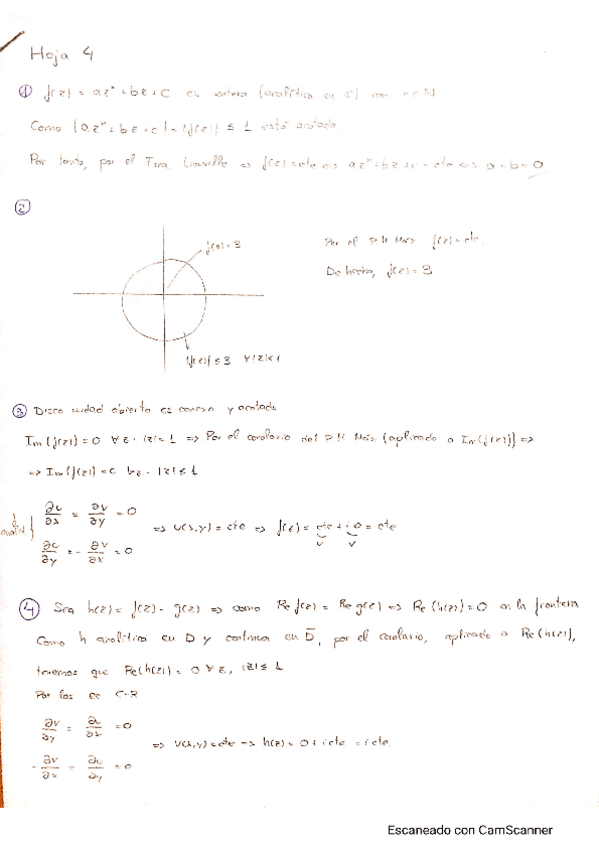 Hoja 4
① f(z) = az^n + bz + c es entera (analítica en C) con n ∈ N
Como |az^n + bz + c| = |f(z)| ≤ 1 está acotada
Por tanto, por el Tma. Liouville ⇒ f(z) = cte ⇔ az^n + bz + c = cte ⇔ a = b = 0
②
f(0) = 3
Por el P.M. Máx f(z) = cte.
De hecho, f(z) = 3
|f(z)| ≤ 3 ∀ |z| < 1
③ Disco unidad abierto es conexo y acotado
Im(f(z)) = 0 ∀ z · |z| = 1 ⇒ Por el corolario del P.M. Máx (aplicado a Im(f(z))) ⇒
⇒ Im(f(z)) = 0 ∀z · |z| ≤ 1
f analít. } ∂u/∂x = ∂v/∂y = 0
⇒ u(x,y) = cte ⇒ f(z) = cte + i·0 = cte
u v
∂u/∂y = - ∂v/∂x = 0
④ Sea h(z) = f(z) - g(z) ⇒ como Re f(z) = Re g(z) ⇒ Re(h(z)) = 0 en la frontera
Como h analítica en D y continua en D̄, por el corolario, aplicado a Re(h(z)),
tenemos que Re(h(z)) = 0 ∀ z, |z| ≤ 1.
Por las ec C-R
∂v/∂y = ∂u/∂x = 0
⇒ v(x,y) = cte → h(z) = 0 + i cte = i cte.
- ∂v/∂x = ∂u/∂y = 0
Escaneado con CamScanner